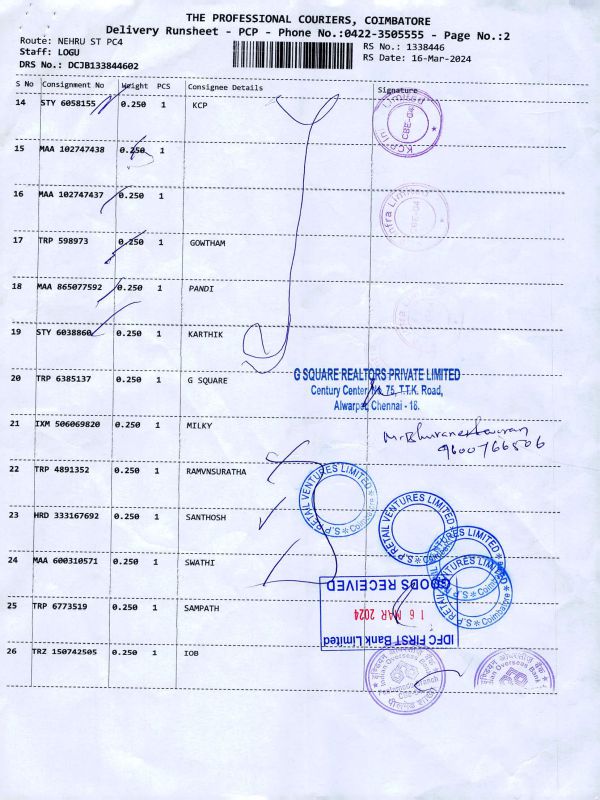 THE PROFESSIONAL COURIERS, COIMBATORE
Delivery Runsheet - PCP - Phone No.:0422-3505555 - Page No.:2
Route: NEHRU ST PC4
RS No.: 1338446
Staff: LOGU
RS Date: 16-Mar-2024
DRS No.: DCJB133844602
S No Consignment No Weight PCS Consignee Details Signature
14 STY 6058155 0.250 1 KCP
KCP In Limited CBE-04 *
15 MAA 102747438 0.250 1
16 MAA 102747437 0.250 1
nfra Limi BE-04
17 TRP 598973 0.250 1 GOWTHAM
18 MAA 865077592 0.250 1 PANDI
19 STY 6038860 0.250 1 KARTHIK
20 TRP 6385137 0.250 1 G SQUARE
G SQUARE REALTORS PRIVATE LIMITED
Century Center, No 75, T.T.K. Road,
Alwarpet, Chennai - 18.
21 IXM 506069820 0.250 1 MILKY
9600766506
22 TRP 4891352 0.250 1 RAMVNSURATHA
S.P. RETAIL VENTURES LIMITED * Coimbatore *
23 HRD 333167692 0.250 1 SANTHOSH
S.P. RETAIL VENTURES LIMITED * Coimbatore *
24 MAA 600310571 0.250 1 SWATHI
GOODS RECEIVED
16 MAR 2024
IDFC FIRST Bank Limited
25 TRP 6773519 0.250 1 SAMPATH
26 TRZ 150742505 0.250 1 IOB
इण्डियन ओवरसीज़ बैंक
Indian Overseas Bank